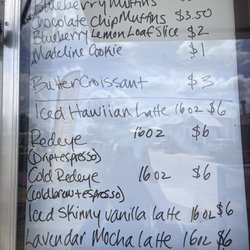 Blueberry Muffins
Chocolate Chip Muffins $3.50
Blueberry Lemon Loaf Slice $2
Madeline Cookie $1
Butter Croissant $3
Iced Hawiian Latte 16oz $6
Redeye 16oz $6
(Drip+espresso)
Cold Redeye 16oz $6
(coldbrew+espresso)
Iced Skinny vanilla latte 16oz $6
Lavendar Mocha latte 16oz $6